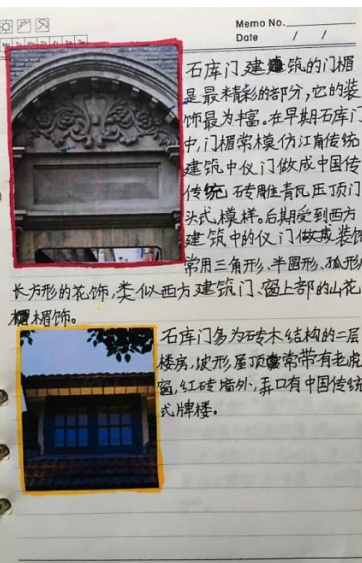 Memo No.
Mo Tu We Th Fr Sa Su
Date / /
石库门建筑的门楣
是最精彩的部分,它的装
饰最为丰富。在早期石库门
中,门楣常模仿江南传统
建筑中仪门做成中国传
传统砖雕青瓦压顶门
头式模样。后期受到西方
建筑中的仪门做成装饰
常用三角形、半圆形、弧形或
长方形的花饰,类似西方建筑门、窗上部的山花
楣饰。
石库门多为砖木结构的二层
楼房,坡形屋顶常带有老虎
窗,红砖墙外,弄口有中国传统
式牌楼。